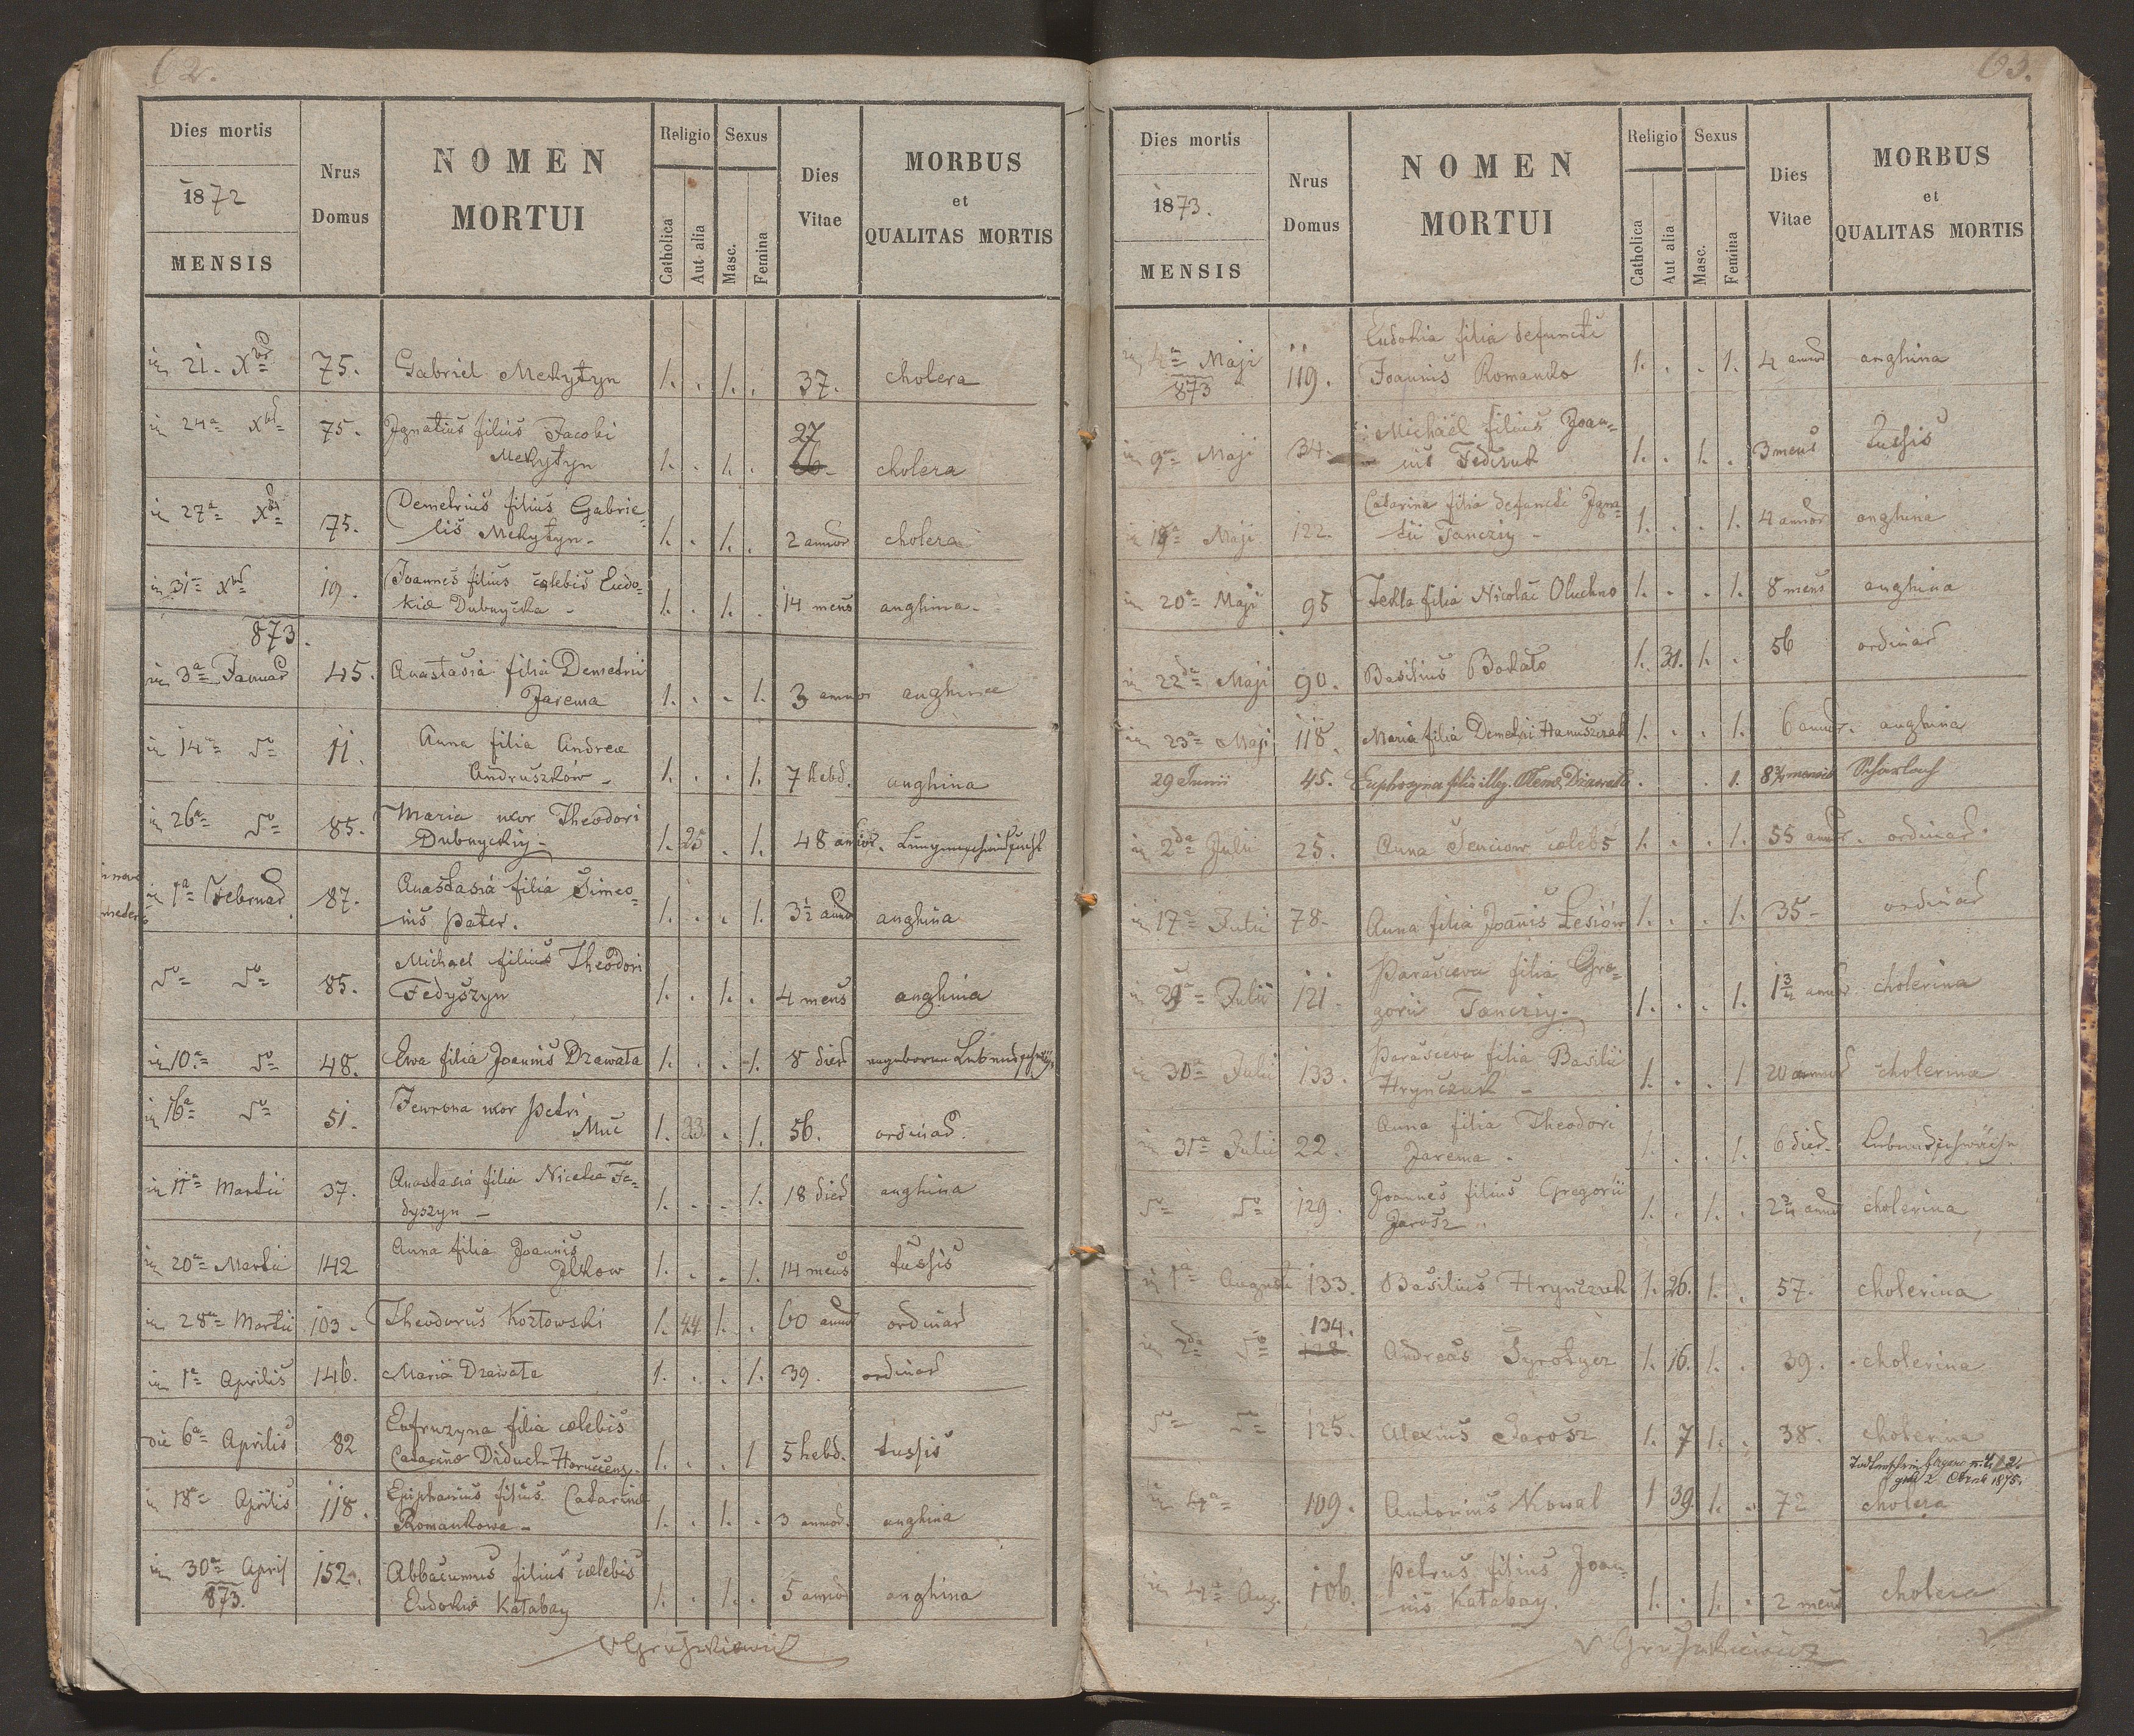 62.
Dies mortis
1872
MENSIS
Nrus
Domus
NOMEN
MORTUI
Religio
Catholica
Aut alia
Sexus
Masc.
Femina
Dies
Vitae
MORBUS
et
QUALITAS MORTIS
21. Xbr 75. Gabriel Mekytyn 1. . 1. . 37. cholera
24a Xbr 75. Ignatius filius Jacobi
Mekytyn 1. . 1. . 27 cholera
27a Xbr 75. Demetrius filius Gabrie-
lis Mekytyn. 1. . 1. . 2 annor cholera
31a Xbr 19. Joannes filius cœlebis Eudo-
kiæ Dubnycka - 1. . 1. . 14 mens anghina.
873.
3a Januar 45. Anastasia filia Demetrii
Jarema 1. . . 1. 3 annor anghina
14a do 11. Anna filia Andreæ
Andruszków - 1. . . 1. 7 hebd. anghina
26a do 85. Maria uxor Theodori
Dubnyckiy - 1. 25 . 1. 48 annor. Lungenschwindsucht
1a Februar 87. Anastasia filia Simeo-
nis Pater. 1. . . 1. 3½ anno anghina
do do 85. Michael filius Theodori
Fedyszyn 1. . 1. . 4 mens anghina
10a do 48. Ewa filia Joannis Drawata 1. . . 1. 8 dier
16a do 51. Fewrona uxor Petri
Muc 1. 23. . 1. 56. ordinar.
11a Martii 37. Anastasia filia Nicetæ Fe-
dyszyn - 1. . . 1. 18 dier anghina
20a Martii 142 Anna filia Joannis
Ilkow 1. . . 1. 14 mens tussis
28a Martii 103. Theodorus Kozłowski 1. 44 1. . 60 annor ordinar
1a Aprilis 146. Maria Drawata 1. . . 1. 39. ordinar
die 6a Aprilis 82 Eufruzyna filia cœlebis
Catarinæ Diduch 1. . . 1 5 hebd. tussis
18a Aprilis 118. Epiphanius filius Catarinæ
Romankowa - 1. . 1. . 3 annor. anghina
30a April
873. 152. Abbacumus filius cœlebis
Eudokiæ Katabay 1. . 1. . 5 annor anghina
63.
Dies mortis
1873.
MENSIS
Nrus
Domus
NOMEN
MORTUI
Religio
Catholica
Aut alia
Sexus
Masc.
Femina
Dies
Vitae
MORBUS
et
QUALITAS MORTIS
4a Maji
873 119. Eudokia filia defuncti
Joannis Romanko 1. . . 1. 4 annor anghina
9a Maji 34. Michael filius Joan-
nis Fedczuk 1. . 1. . 3 mens tussis
Maji 122. Catarina filia defuncti Igna-
tii Tancziy - 1. . . 1. 4 annor anghina
20a Maji 95 Tekla filia Nicolai Oluchno 1. . . 1. 8 mens anghina
22da Maji 90. Basilius Bokało 1. 31. 1. . 56 ordinar
23a Maji 118. Maria filia Demetrii Hanuszczak 1. . . 1. 6 annor. anghina
29 Junii 45. Euphrozyna filia illeg. Drawata . . 1. 8¾ mensis Scharlach
2da Julii 25. Anna Senciow cælebs 1. . . 1. 55 annor. ordinar.
17a Julii 78. Anna filia Joannis Lesiów 1. . . 1. 35 - ordinar
29a Julii 121. Parasceva filia Gre-
gorii Tancziy. 1. . . 1. 1¾ annor cholerina
30a Julii 133. Parasceva filia Basilii
Hrynczuk - 1. . . 1 20 annor cholerina
31a Julii 22. Anna filia Theodori
Jarema. 1. . . 1. 6 dier. Lebensschwäche
do do 129. Joannes filius Gregorii
Jarosz 1. . 1. . annor cholerina
1a Augusti 133. Basilius Hrynczuk 1. 26. 1. . 57. cholerina
2da do 134.
128. Andreas Syrotyez 1. 16. 1. . 39. cholerina
do do 125. Alexius Jarosz 1. 7 1. . 38. cholerina
4a 109. Antonius Kowal 1 39. 1. . 72 cholera
4a Aug. 106. Petrus filius Joan-
nis Katabay. 1. . 1. . 2 mens cholera